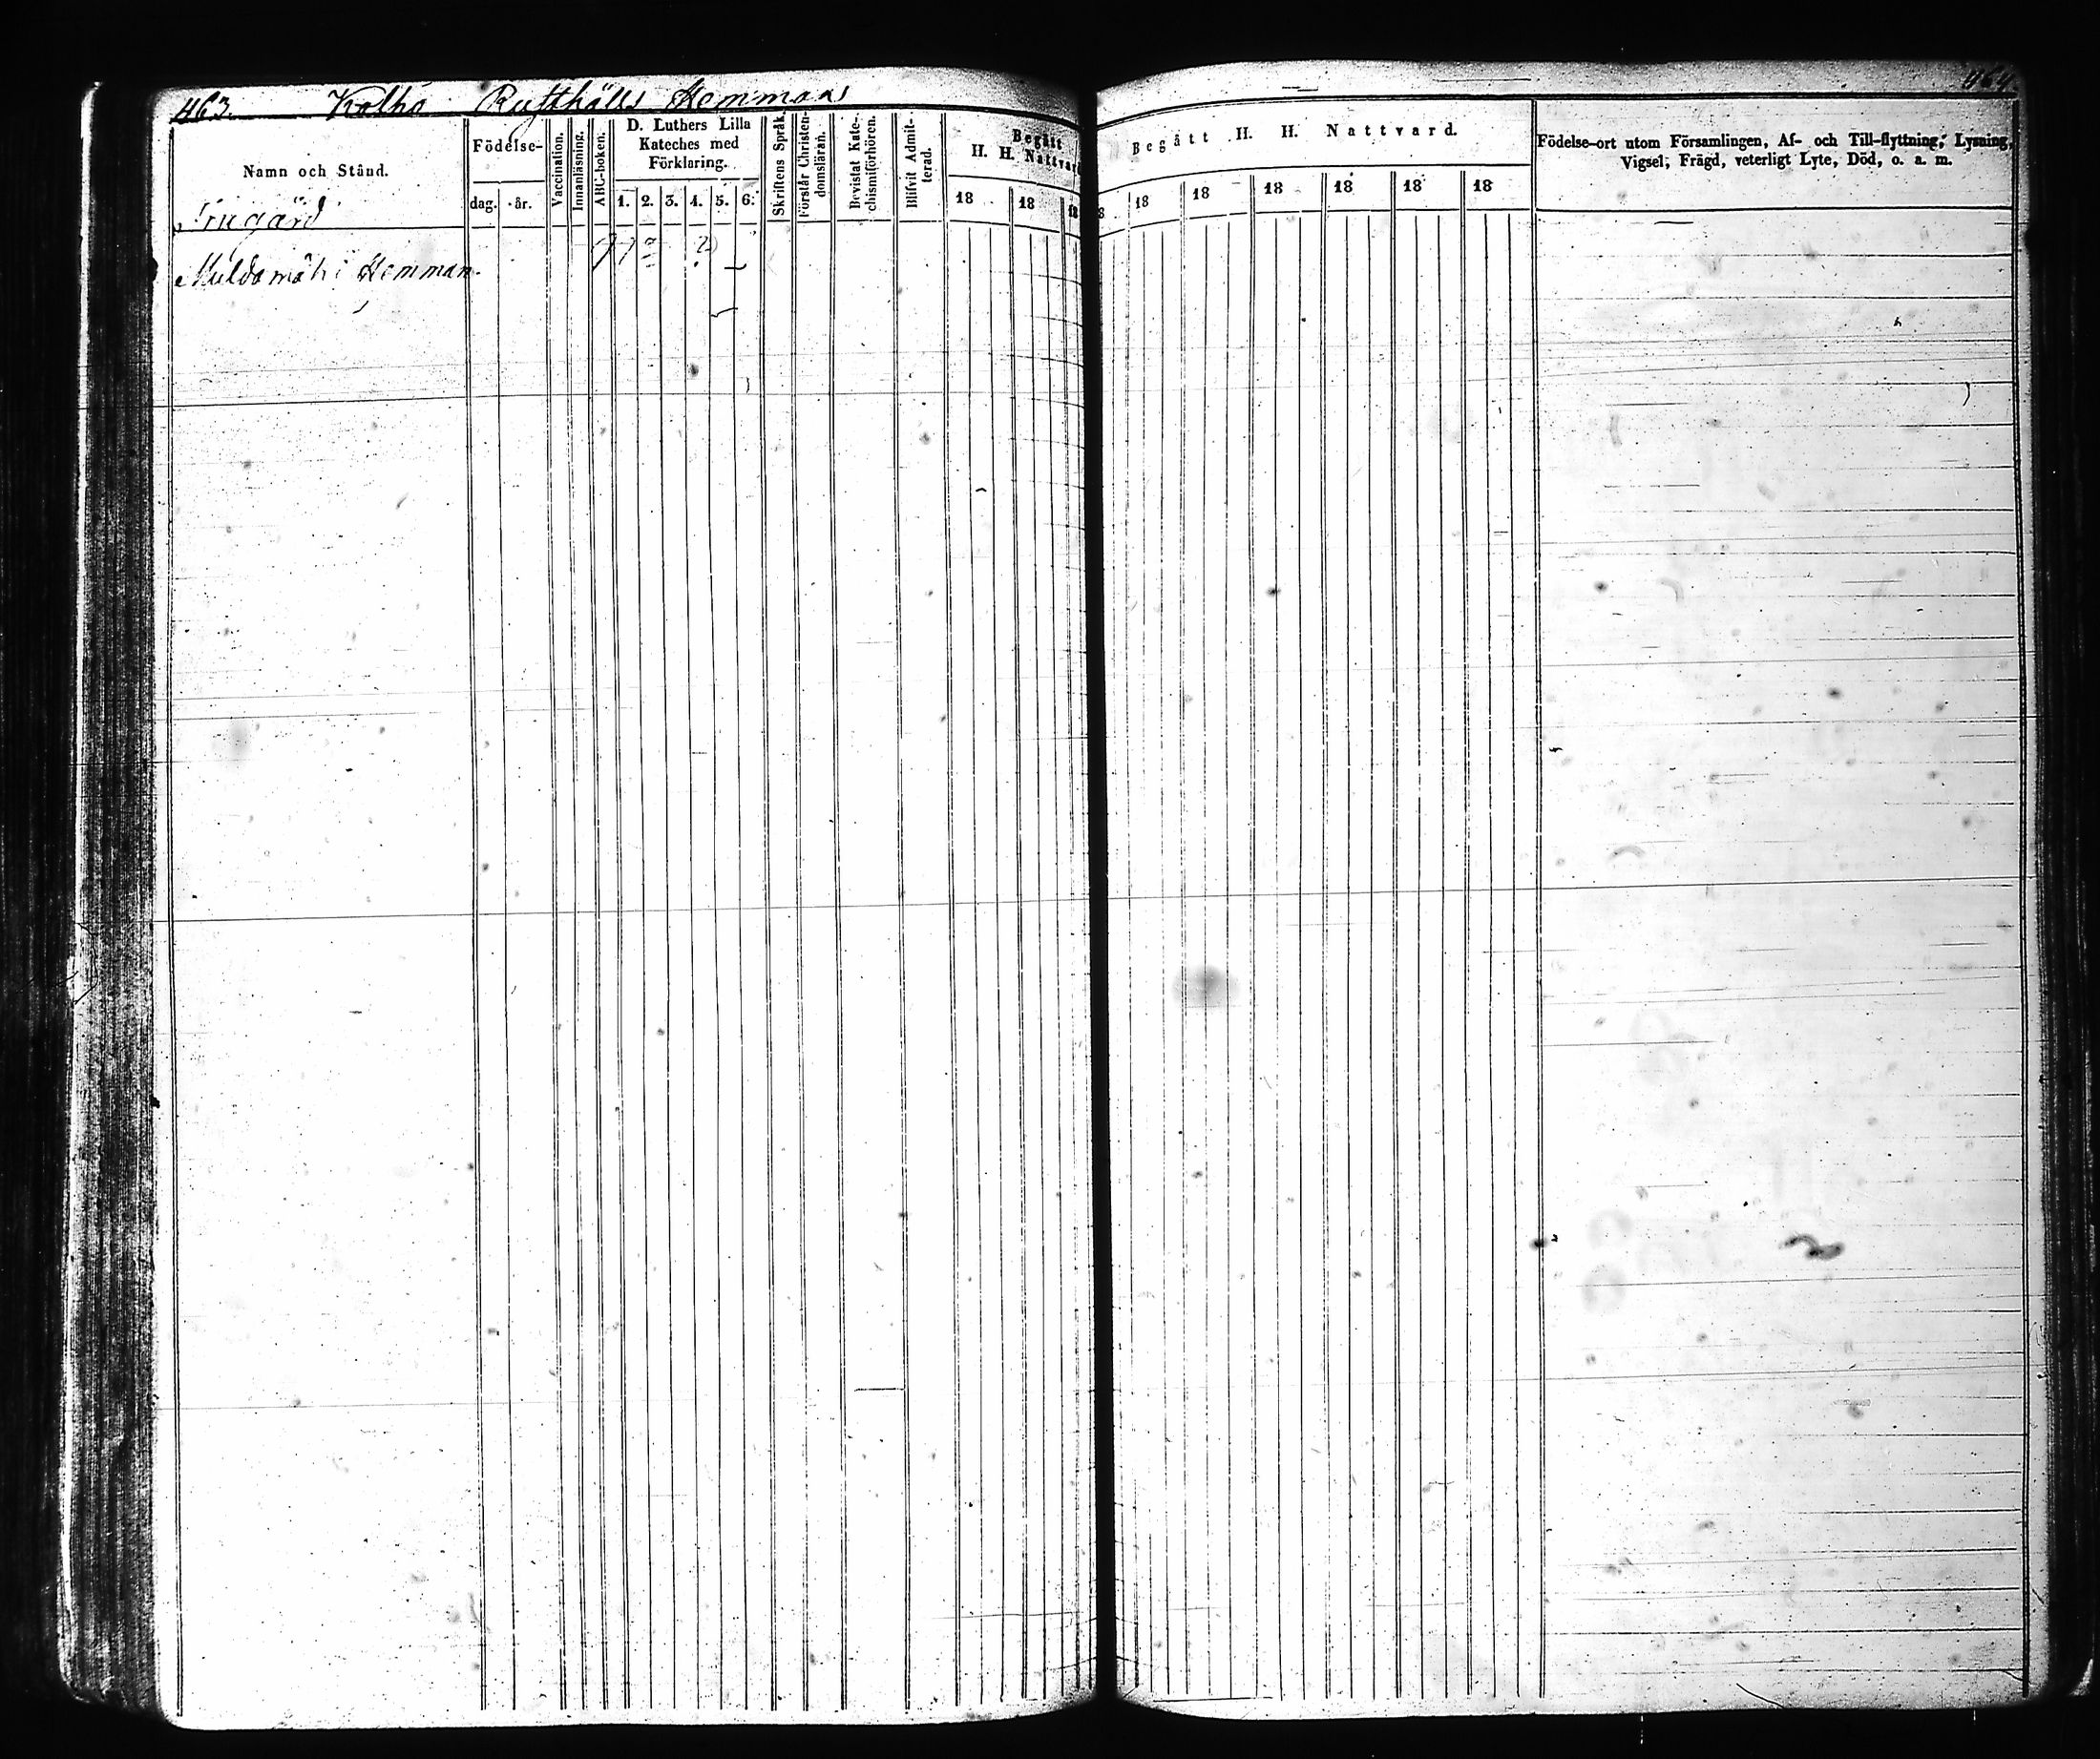 463. Kolho Rusthålls Hemmans
464.
Namn och Stånd.
Födelse-
dag.
år.
Vaccination.
Innanläsning.
ABC-boken.
D. Luthers Lilla
Kateches med
Förklaring.
1. 2. 3. 4. 5. 6.
Skriftens Språk.
Förstår Christen-
domsläran.
Bevistat Kate-
chismiförhören.
Blifvit Admit-
terad.
Begått
H. H. Nattvard
18 18 18
Begått H. H. Nattvard.
18 18 18 18 18 18
Födelse-ort utom Församlingen, Af- och Till-flyttning, Lysning,
Vigsel, Frägd, veterligt Lyte, Död, o. a. m.
Hemman